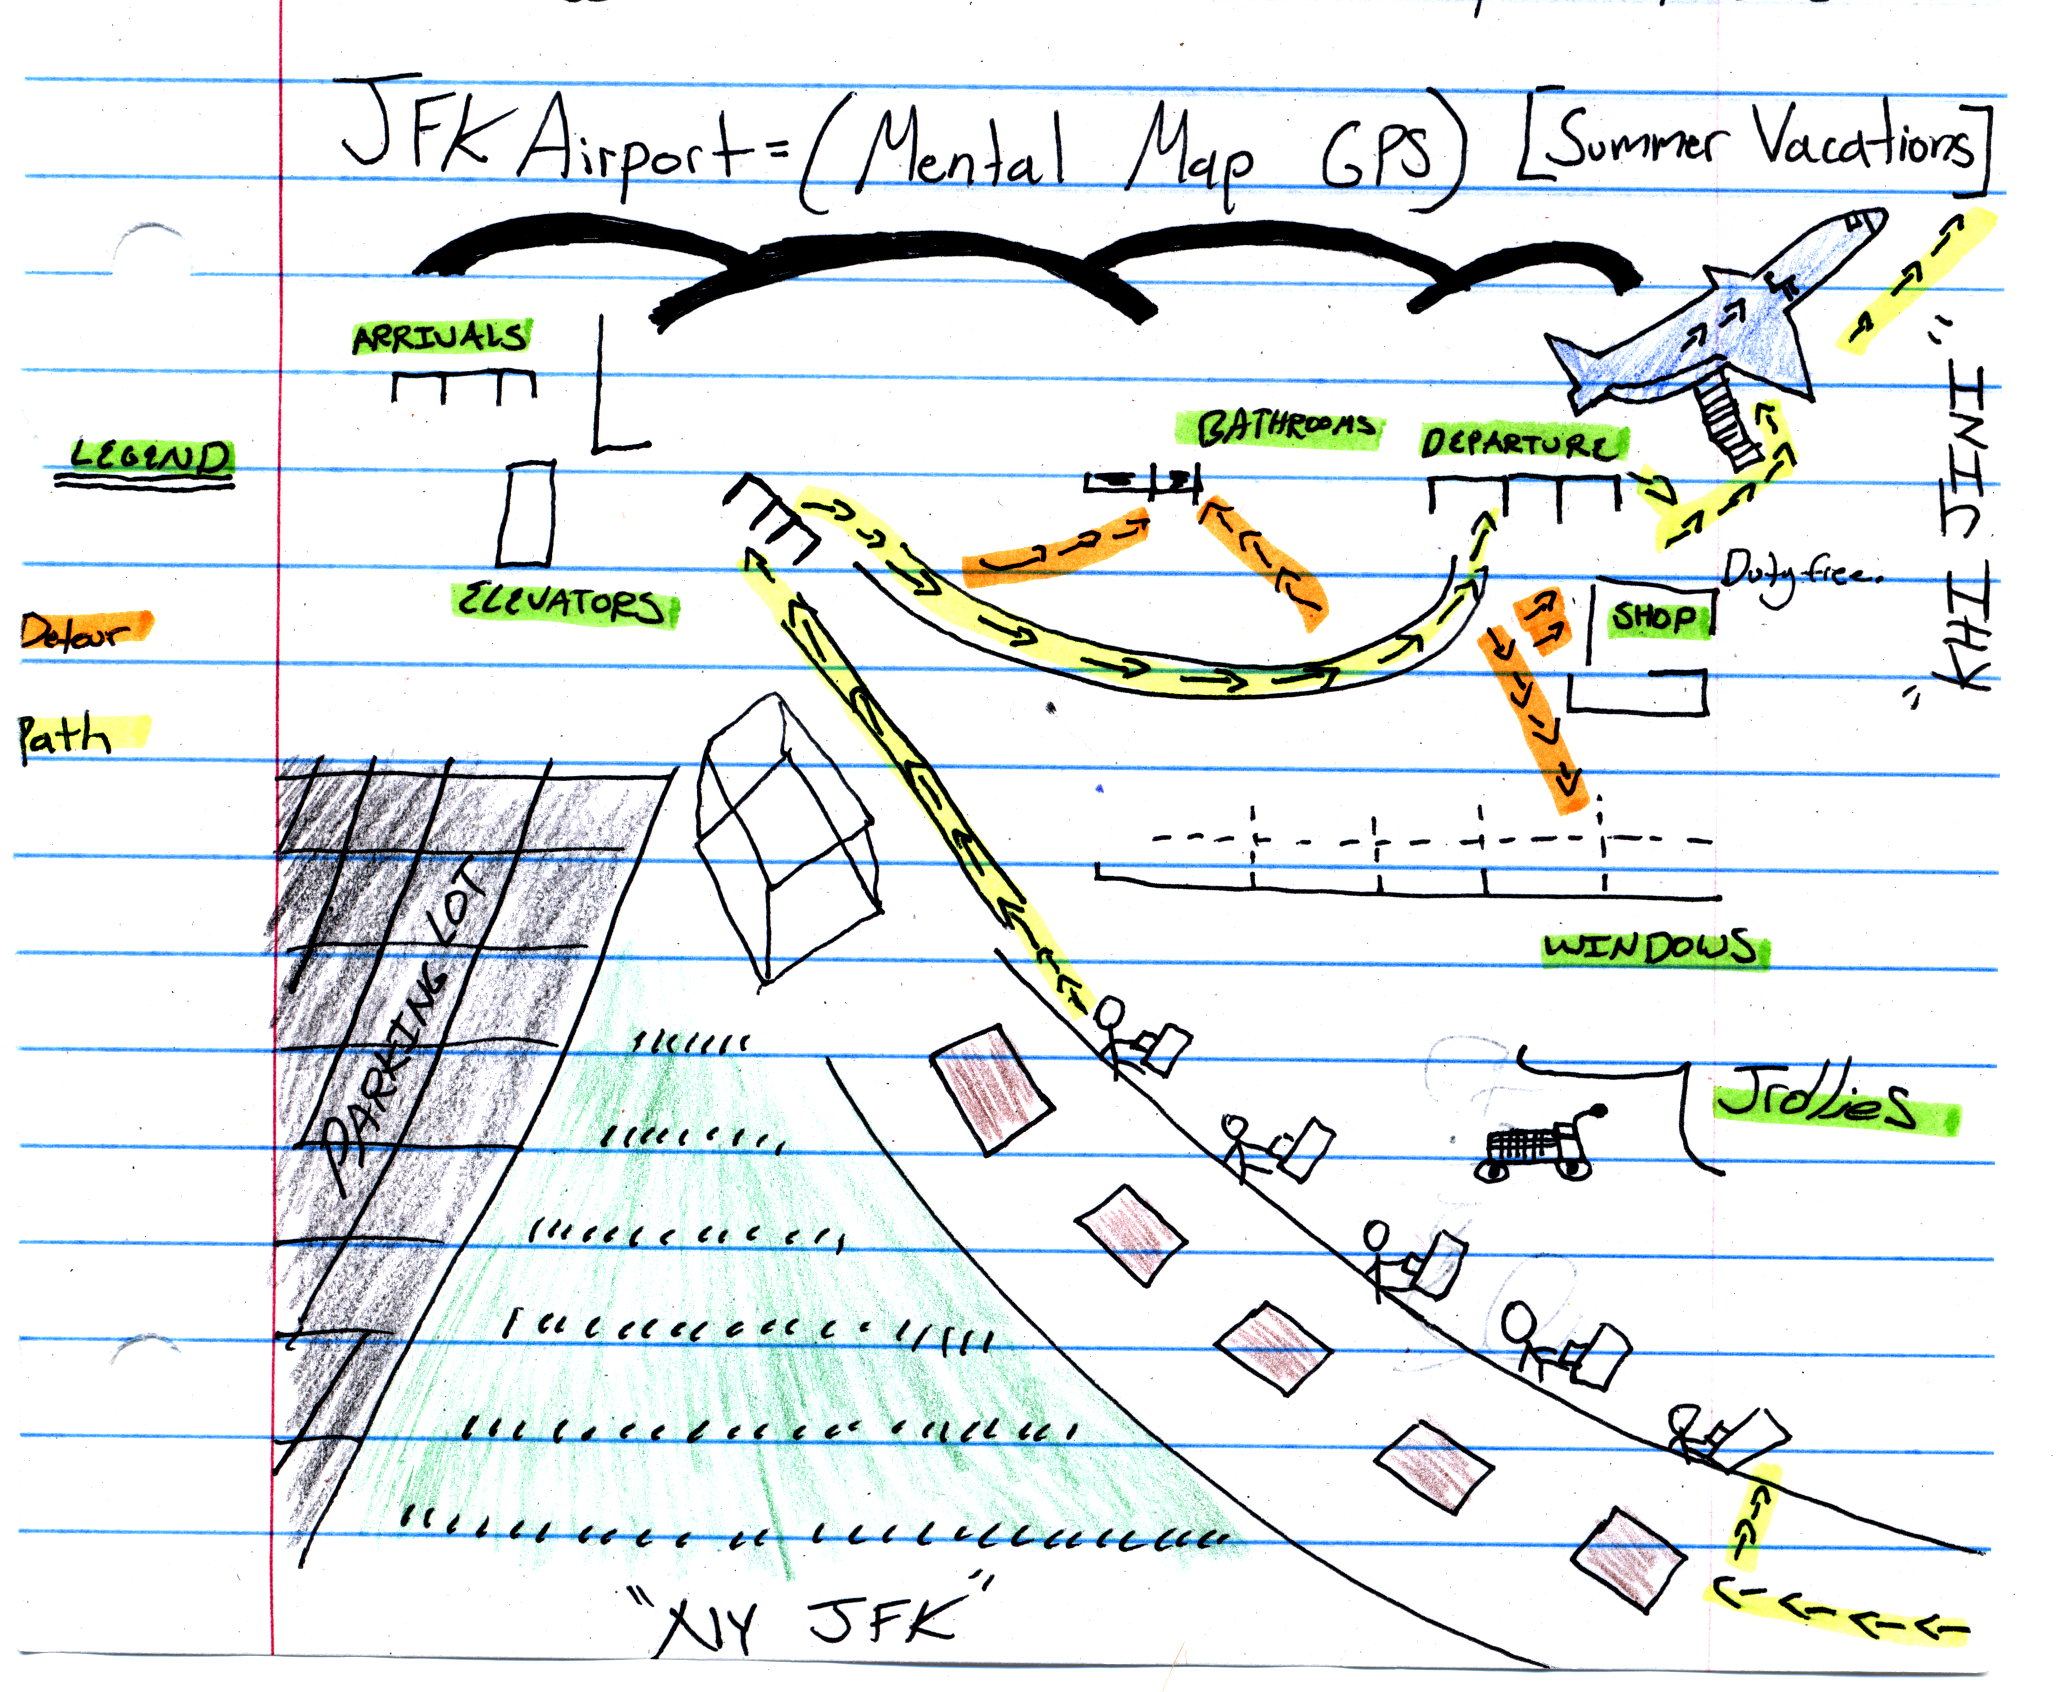 JFK Airport = (Mental Map GPS) [Summer Vacations]
ARRIVALS
BATHROOMS
DEPARTURE
LEGEND
"KHI JINI"
Duty free.
ELEVATORS
SHOP
Detour
Path
PARKING LOT
WINDOWS
Trollies
"NY JFK"